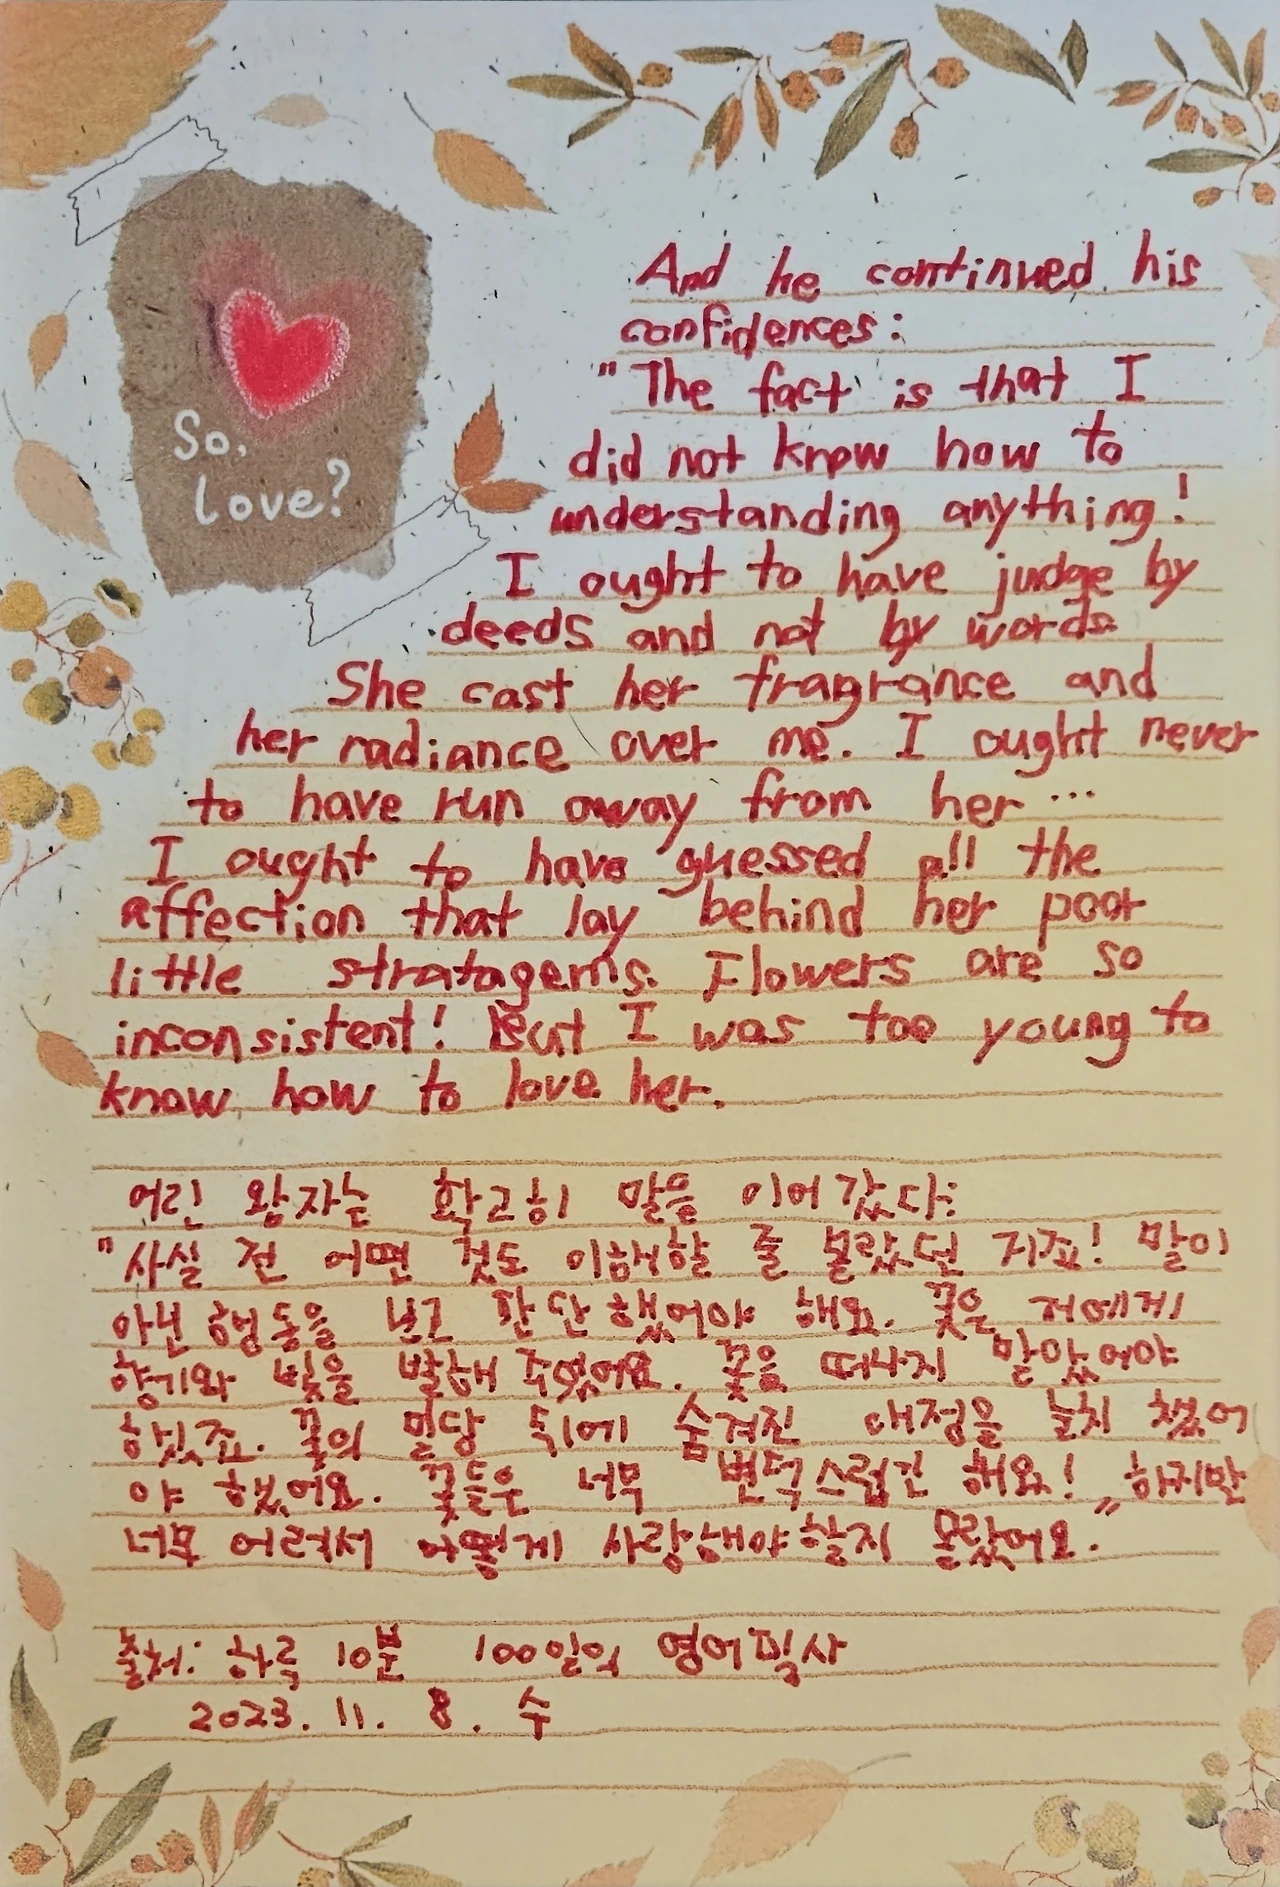 So,
Love?
And he continued his
confidences:
"The fact is that I
did not know how to
understanding anything!
I ought to have judge by
deeds and not by words
She cast her fragrance and
her radiance over me. I ought never
to have run away from her...
I ought to have guessed all the
affection that lay behind her poor
little stratagems. Flowers are so
inconsistent! But I was too young to
know how to love her.
어린 왕자는 확고히 말을 이어갔다:
"사실 전 어떤 것도 이해할 줄 몰랐던 거죠! 말이
아닌 행동을 보고 판단했어야 해요. 꽃은 저에게
향기와 빛을 발해 주었어요. 꽃을 떠나지 말았어야
했죠. 꽃의 밀당 뒤에 숨겨진 애정을 눈치 챘어
야 했어요. 꽃들은 너무 변덕스럽긴 해요! 〃하지만
너무 어려서 어떻게 사랑해야할지 몰랐어요.
출처: 하루 10분 100일의 영어필사
2023. 11. 8. 수